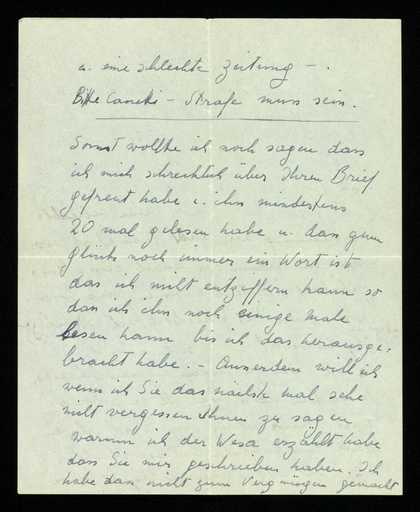 u. eine schlechte Zeitung – .
Bitte Canetti – Strafe muss sein.
Sonst wollte ich noch sagen dass
ich mich schrecklich über Ihren Brief
gefreut habe u. ihn mindestens
20 mal gelesen habe u. dass zum
Glück noch immer ein Wort ist
das ich nicht entziffern kann so
dass ich ihn noch einige Male
lesen kann bis ich das herausge-
bracht habe. – Ausserdem will ich
wenn ich Sie das nächste Mal sehe
nicht vergessen Ihnen zu sagen
warum ich der Wesa erzählt habe
dass Sie mir geschrieben haben. Ich
habe das nicht zum Vergnügen gemacht